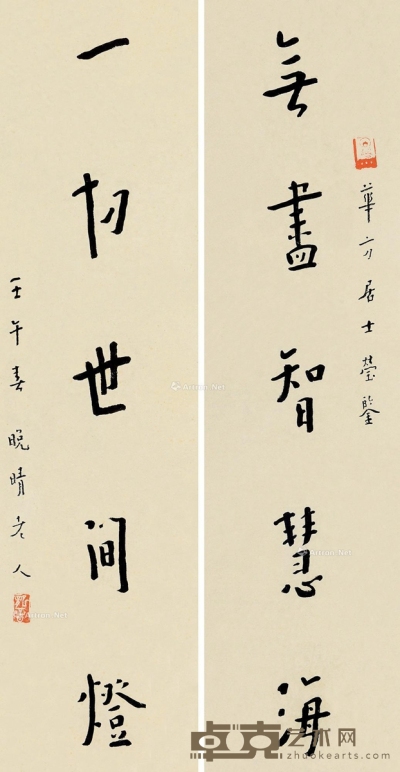 無盡智慧海
華方居士瑩鑒
一切世間燈
壬午春晚晴老人
卓克艺术网
zhuokearts.com